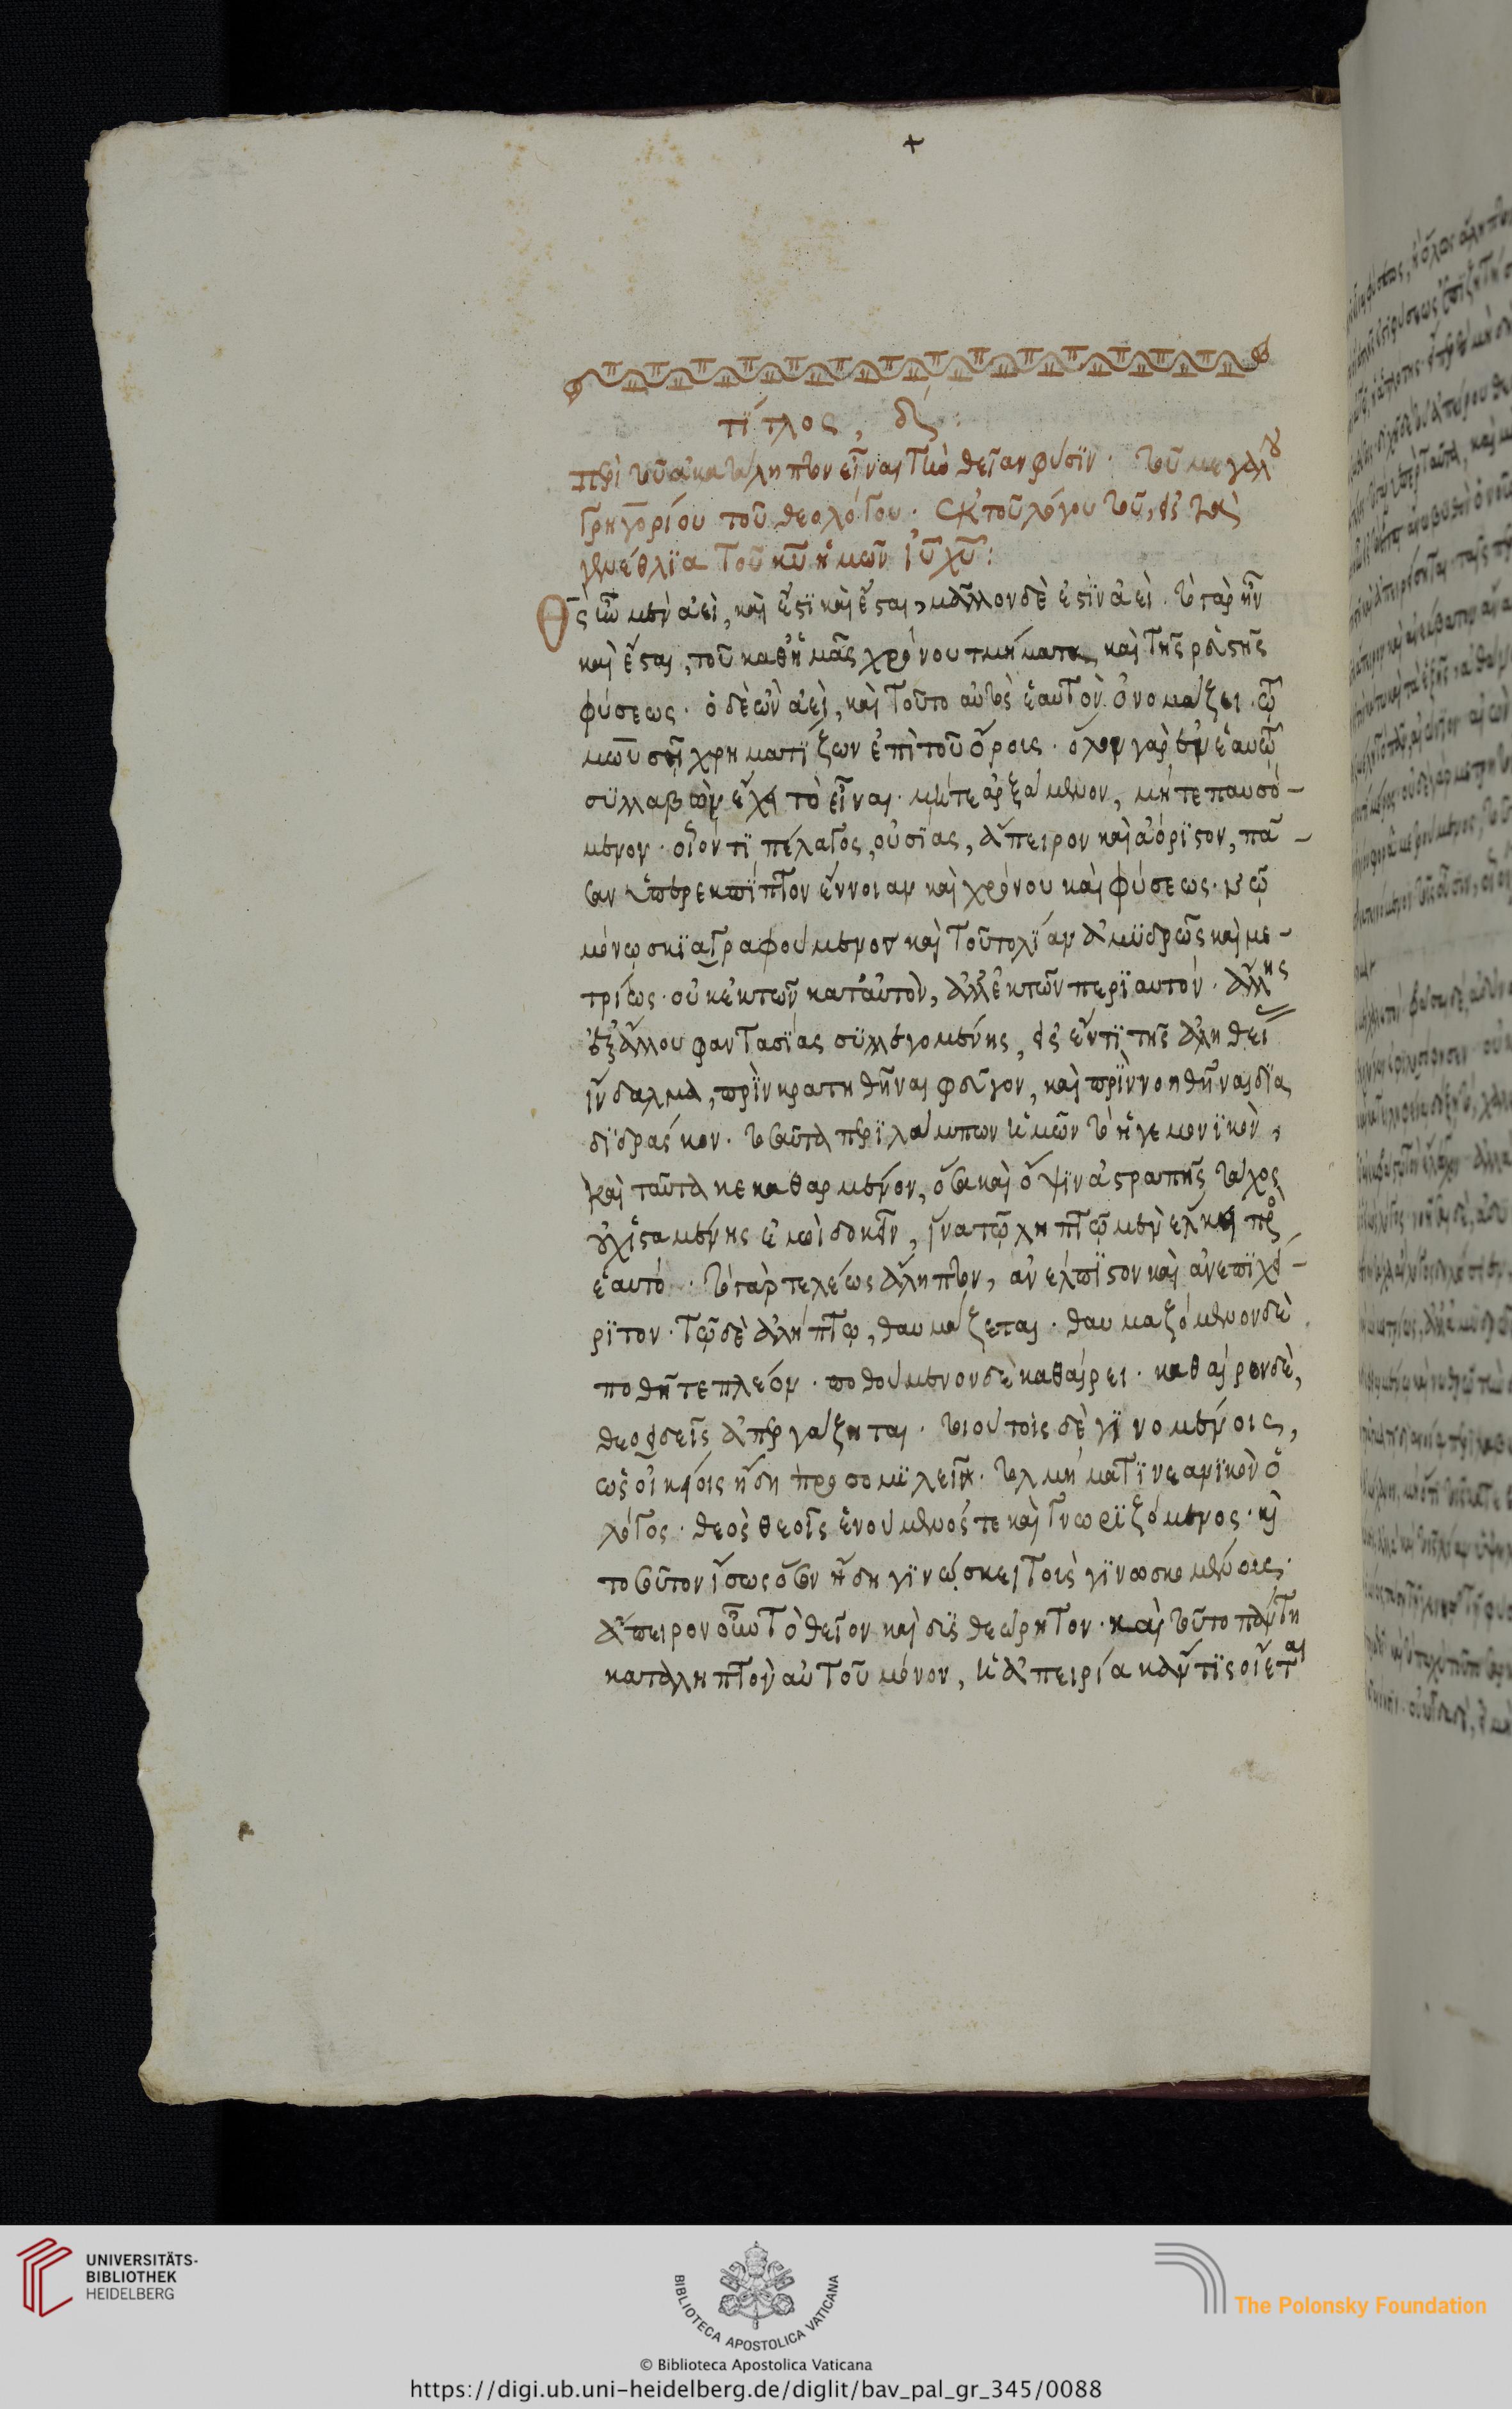 τίτλος, δ:
περὶ τοῦ ἀκατάληπτον εἶναι τὴν θείαν φύσϊν. τοῦ μεγάλου
Γρηγορίου τοῦ θεολόγου. ἐκ τοῦ λόγου τοῦ, εἰς τὰ
γενέθλϊα τοῦ κ̅υ̅ ἡμῶν ι̅υ̅ χ̅υ̅:
Θ̅ς̅ ἦν μὲν ἀεὶ, καὶ ἔστϊ καὶ ἔσται, μᾶλλον δὲ ἐστὶν ἀεὶ. τὸ γὰρ ἦν
καὶ ἔσται, τοῦ καθ' ἡμᾶς χρόνου τμήματα, καὶ τῆς ῥευστῆς
φύσεως. ὁ δὲ ὢν ἀεὶ, καὶ τοῦτο αὐτὸς ἑαυτὸν ὀνομάζει. τῷ
μωϋσῇ χρηματίζων ἐπὶ τοῦ ὄρους. ὅλον γὰρ ἐν ἑαυτῷ
συλλαβὼν ἔχει τὸ εἶναι. μήτε ἀρξάμενον, μήτε παυσό-
μενον. οἷόν τϊ πέλαγος, οὐσίας, ἄπειρον καὶ ἀόρϊστον, πᾶ-
σαν ὑπερεκπῖπτον ἔννοιαν καὶ χρόνου καὶ φύσεως. νῷ
μόνῳ σκϊαγραφούμενον καὶ τοῦτο λίαν ἀμϋδρῶς καὶ με-
τρίως. οὐκ ἐκ τῶν κατ' αὐτὸν, ἀλλ' ἐκ τῶν περὶ αὐτόν. ἄλλης
ἐξ ἄλλου φαντασίας συλλεγομένης, εἰς ἕν τι τῆς ἀληθεί
ἴνδαλμα, πρὶν κρατηθῆναι φεῦγον, καὶ πρὶν νοηθῆναι δϊα
δϊδράσκον. τοσαῦτα περιλάμπων ἡμῶν τὸ ἡγεμονϊκὸν,
καὶ ταῦτα κεκαθαρμένον, ὅσα καὶ ὄψϊν ἀστραπῆς τάχος
οὐχ ἱσταμένης ἐμοὶ δοκεῖν, ἵνα τῷ ληπτῷ μὲν ἕλκῃ πρὸς
ἑαυτό. τὸ γὰρ τελέως ἄληπτον, ἀνέλπϊστον καὶ ἀνεπϊχεί-
ρϊτον. τῷ δὲ ἀλήπτῳ, θαυμάζεται. θαυμαζόμενον δὲ
ποθῆτε πλέον. ποθούμενον δὲ καθαίρει. καθαίρονδὲ,
θεοειδεῖς ἀπεργάζηται. τοιούτοις δὲ γϊνομένοις,
ὡς οἰκείοις ἤδη προσομϊλεῖν. τολμήματϊ νεανϊκὸν ὁ
λόγος. θεὸς θεοῖς ἑνούμενός τε καὶ γνωρϊζόμενος. καὶ
τοσοῦτον ἴσως ὅσον ἤδη γϊνώσκει τοῖς γϊνοσκομένοις.
ἄπειρον οὖν τὸ θεῖον καὶ δυσθεώρητον. καὶ τοῦτο πάντη
καταληπτὸν αὐτοῦ μόνον, ἡ ἀπειρία κἄν τϊς οἴεται
UNIVERSITÄTS-
BIBLIOTHEK
HEIDELBERG
BIBLIOTECA APOSTOLICA VATICANA
The Polonsky Foundation
© Biblioteca Apostolica Vaticana
https://digi.ub.uni-heidelberg.de/diglit/bav_pal_gr_345/0088